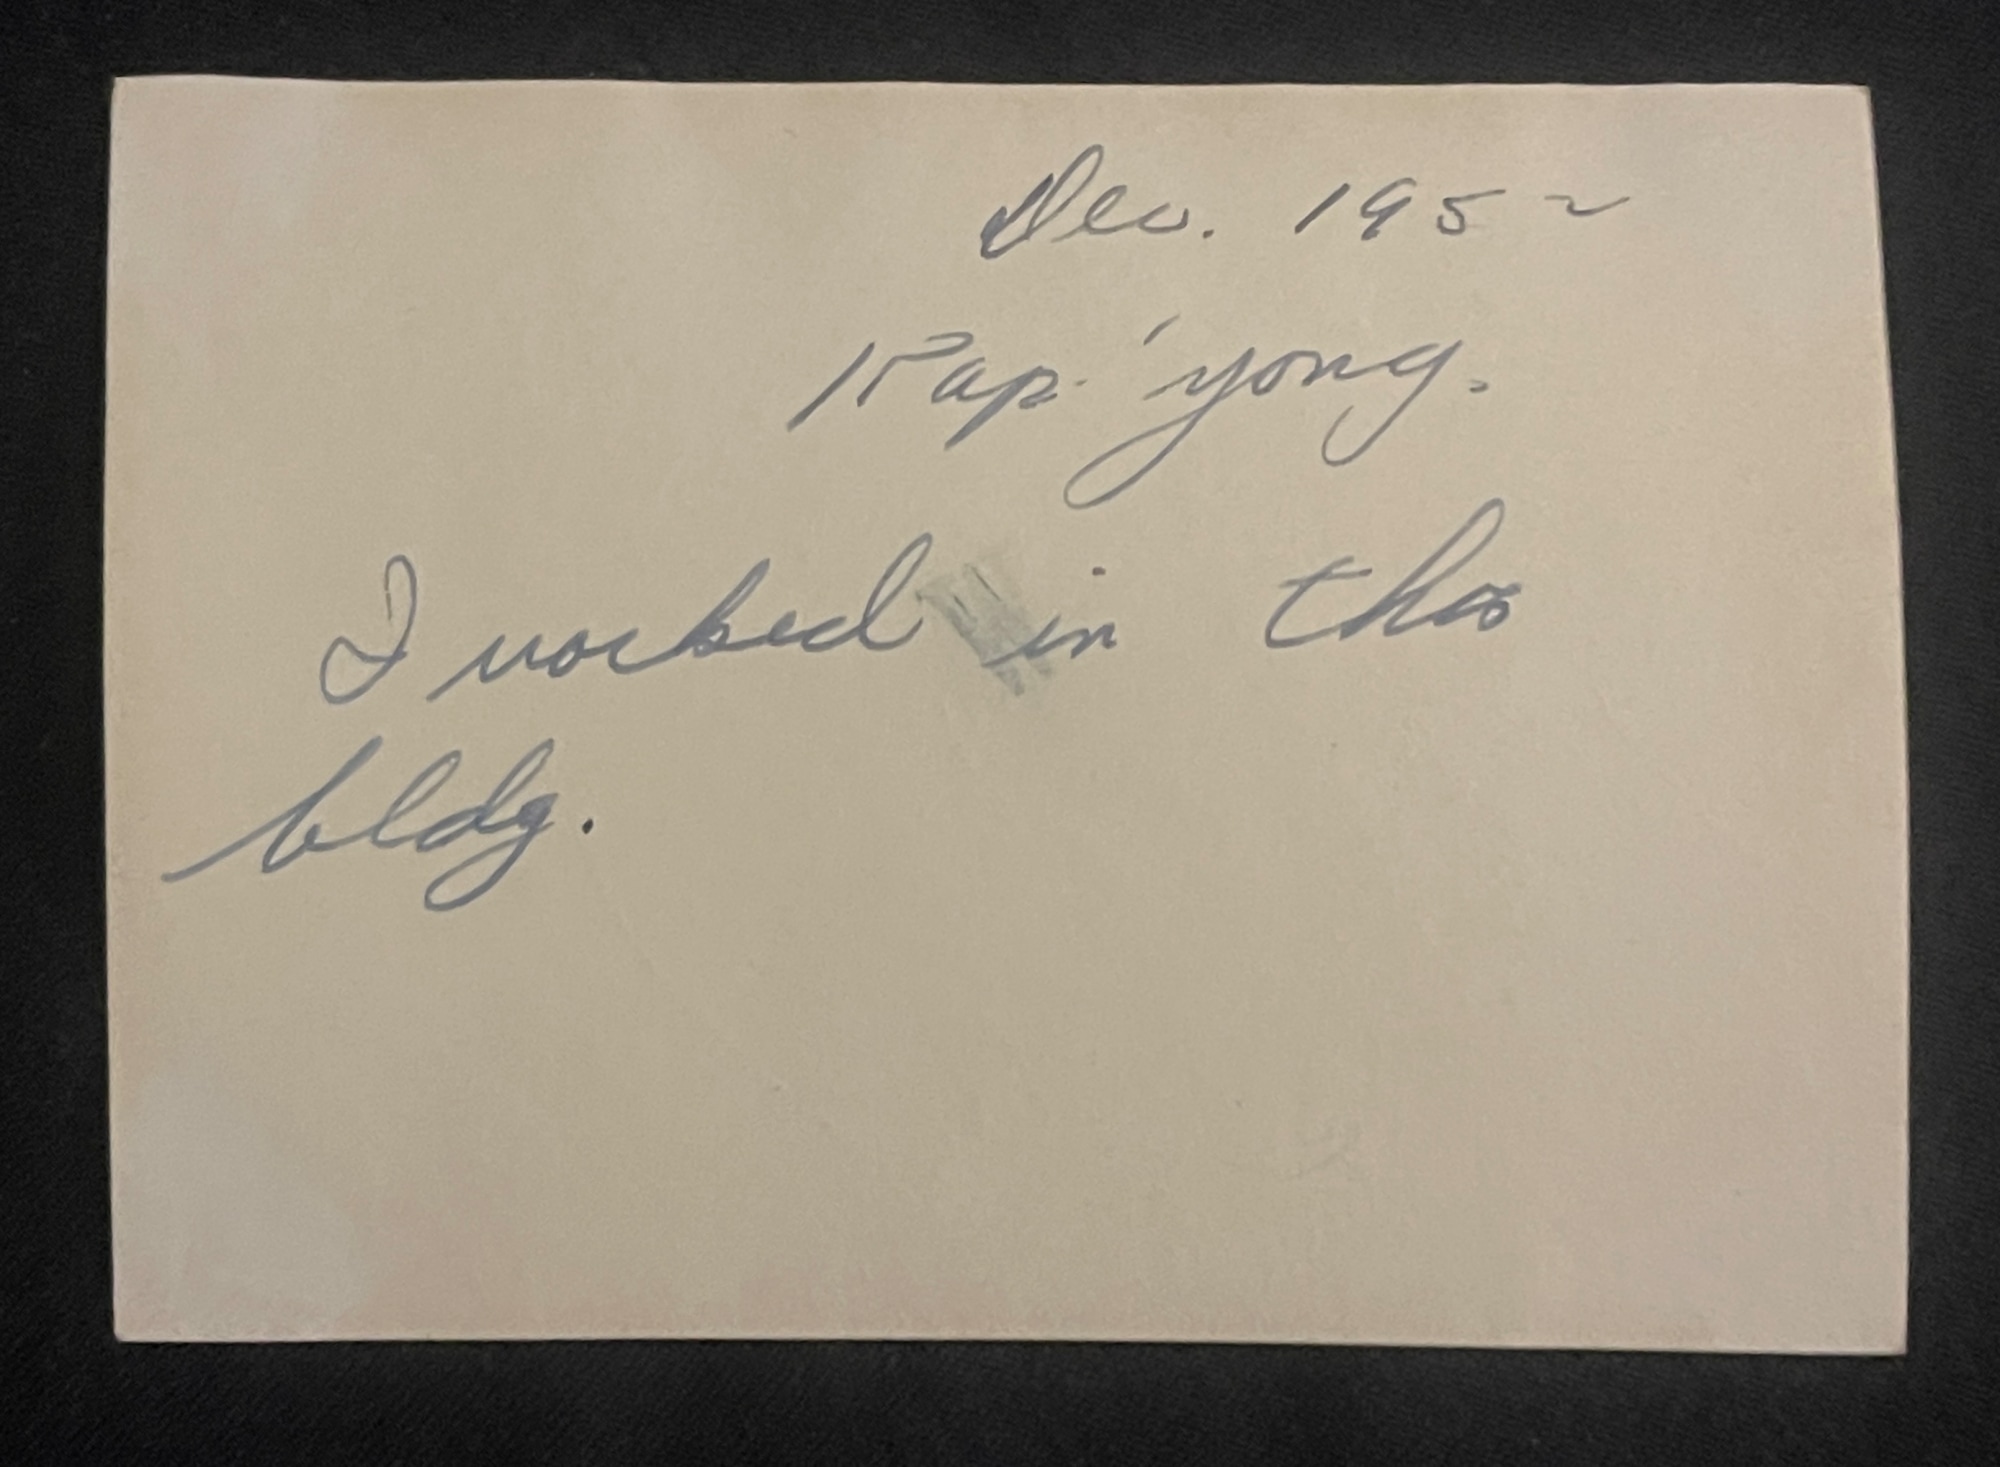 Dec. 1952
Kap'yong.
I worked in this
bldg.